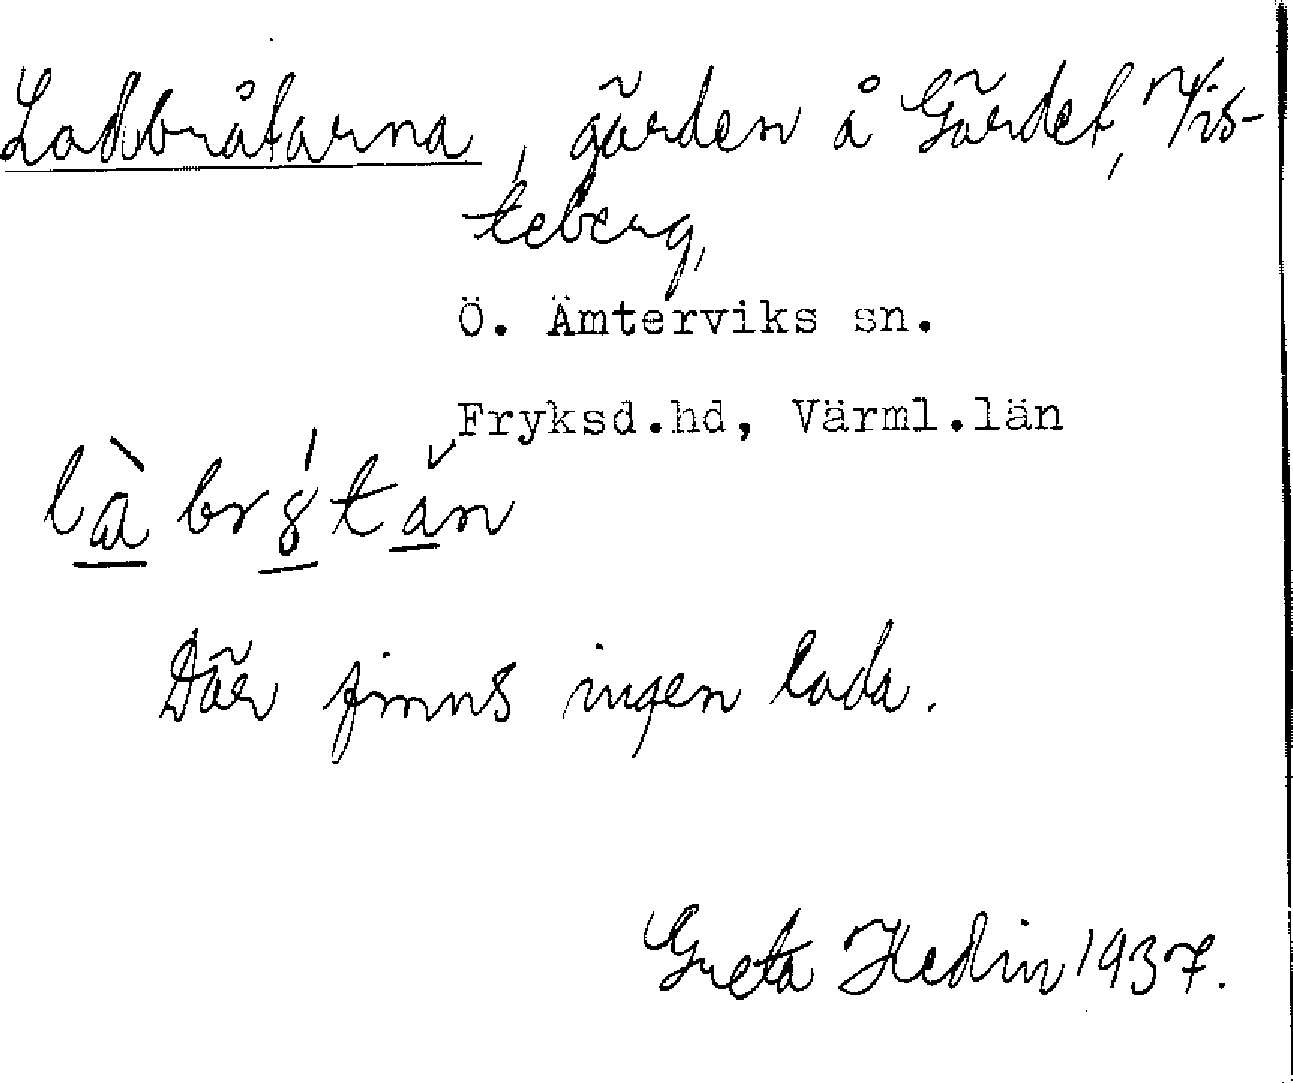 Ladbråtarna, gärden å Gärdet, Vis-
teberg,
Ö. Ämterviks sn.
Fryksd.hd, Värml.län
Där finns ingen lada.
Greta Hedin 1937.